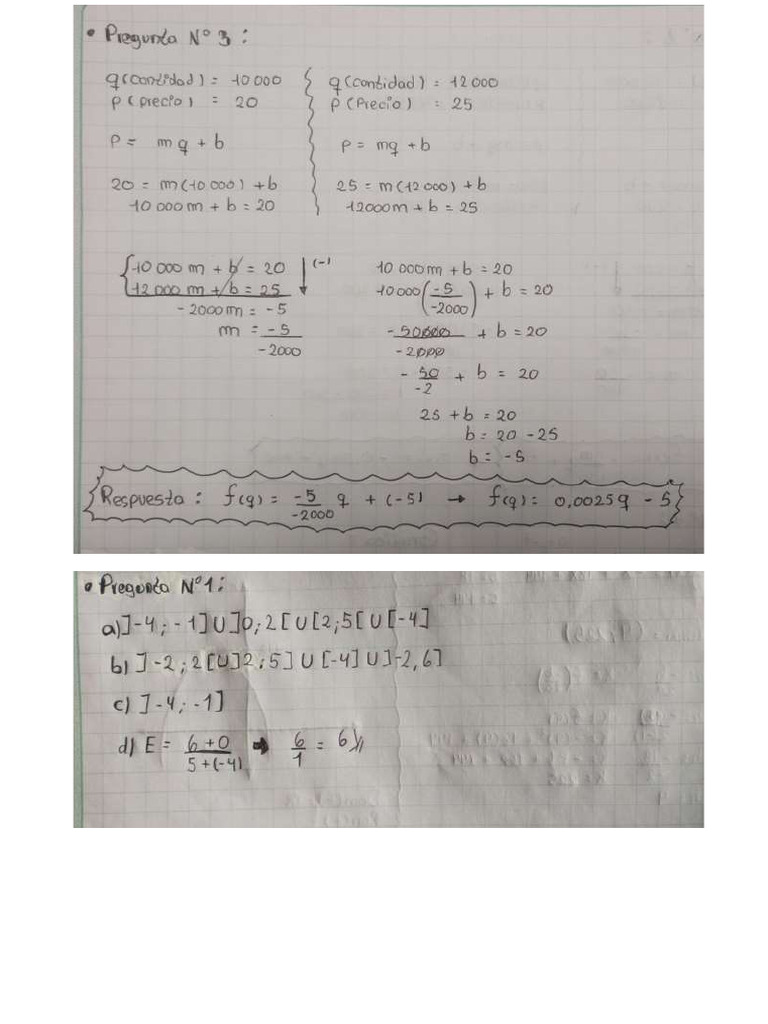 • Pregunta N° 3:
q(cantidad) = 10 000
p(precio) = 20
P = mq + b
20 = m(10 000) + b
10 000m + b = 20
q(cantidad) = 12 000
p(Precio) = 25
p = mq + b
25 = m(12 000) + b
12000m + b = 25
10 000 m + b = 20 (-)
12 000 m + b = 25
-2000m = -5
m = -5/-2000
10 000m + b = 20
10 000(-5/-2000) + b = 20
-50000/-2000 + b = 20
-50/-2 + b = 20
25 + b = 20
b = 20 - 25
b = -5
Respuesta: f(q) = -5/-2000 q + (-5) → f(q) = 0,0025q - 5
• Pregunta N°1:
a) ]-4; -1] U ]0; 2[ U [2; 5[ U [-4]
b) ]-2; 2[ U ]2; 5] U [-4] U ]-2, 6]
c) ]-4; -1]
d) E = 6+0/5+(-4) → 6/1 = 6//